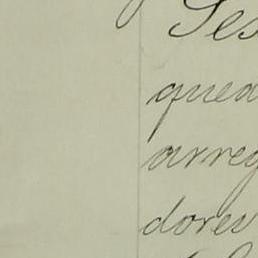 Ses
queda
arreg
dores